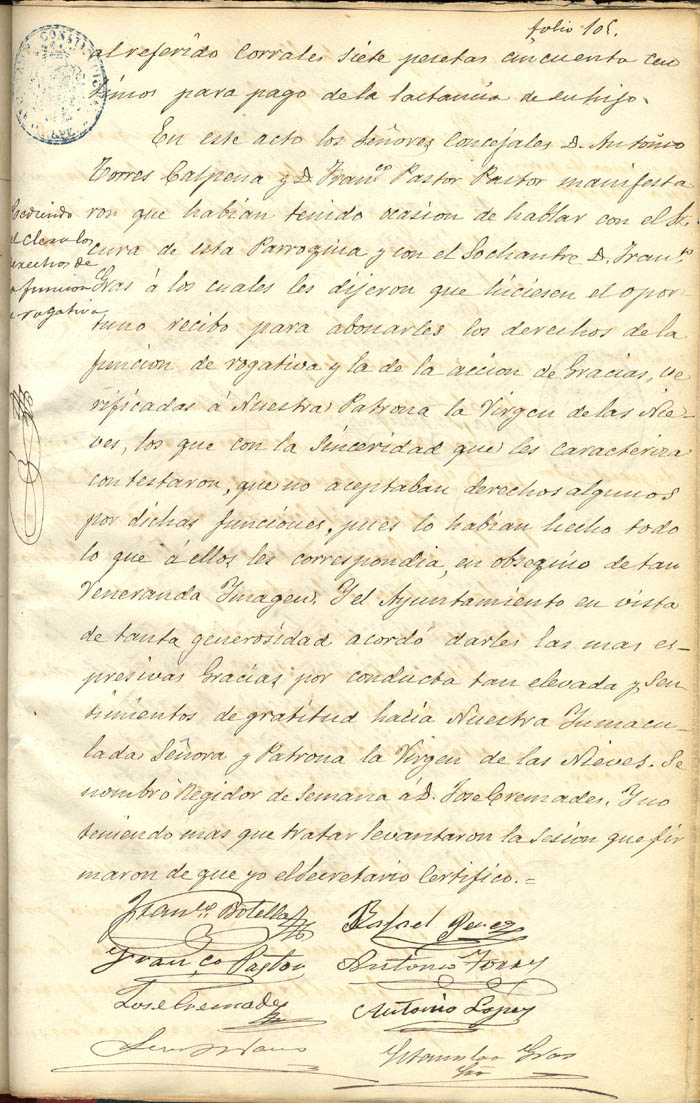 folio 105.
al referido Corrales siete pesetas cincuenta cen
timos para pago de la lactancia de su hijo.
En este acto los Señores Concejales D. Antonio
Torres Calpena y D. Franco Pastor Pastor manifesta
ron que habian tenido ocasion de hablar con el Sr.
cura de esta Parroquia y con el Sochantre D. Franco
Gras á los cuales les dijeron que hiciesen el opor-
tuno recibo para abonarles los derechos de la
funcion de rogativa y la de la accion de Gracias, ve
rificadas á Nuestra Patrona la Virgen de las Nie-
ves, los que con la Sinceridad que les caracteriza
contestaron, que no aceptaban derechos algunos
por dichas funciones, pues lo habian hecho todo
lo que á ellos les correspondia, en obsequio de tan
Veneranda Ymagen. Y el Ayuntamiento en vista
de tanta generosidad acordó darles las mas es-
presivas Gracias por conducta tan elevada y Sen
timientos de gratitud hacia Nuestra Ynmacu-
lada Señora y Patrona la Virgen de las Nieves. Se
nombró Regidor de Semana á D. Jose Cremades. Y no
teniendo mas que tratar levantaron la Sesion que fir
maron de que yo el Secretario Certifico.=
Cediendo
el Clero los
derechos de
funcion
rogativa
Franco. Botella
Rafael Perez
Franco Pastor
Antonio Torres
Jose Cremades
Antonio Lopez
Estanislao Gras
Srio